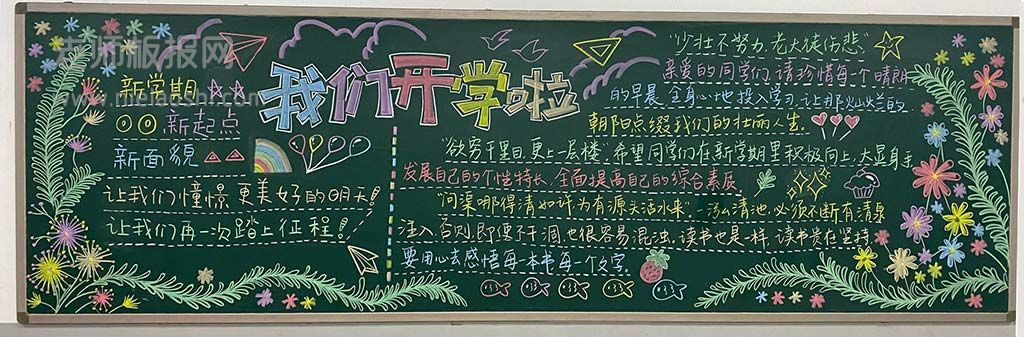 老师板报网
www.meiaoshi.com
我们开学啦
新学期
新起点
新面貌
让我们憧憬更美好的明天!
让我们再一次踏上征程!
"少壮不努力,老大徒伤悲"
亲爱的同学们,请珍惜每个晴朗
的早晨,全身心地投入学习,让那灿烂的
朝阳点缀我们的壮丽人生.
"欲穷千里目,更上一层楼",希望同学们在新学期里积极向上,大显身手
发展自己的个性特长,全面提高自己的综合素质.
"问渠哪得清如许为有源头活水来",一汤清池,必须不断有清泉
注入,否则,即便不干涸也很容易混浊,读书也是一样,读书贵在坚持,
要用心去感悟每一本书,每一个文字.